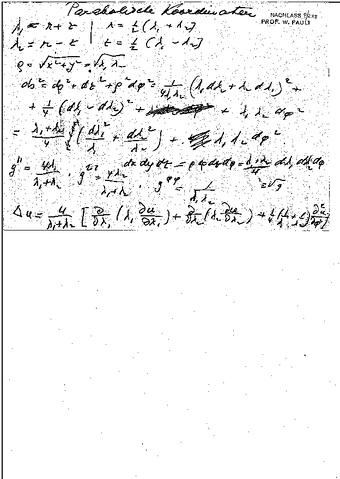 Parabolische Koordinaten
NACHLASS
PROF. W. PAULI
λ₁ = r + z | r = ½ (λ₁ + λ₂)
λ₂ = r − z | z = ½ (λ₁ − λ₂)
ρ = √(x² + y²) = √(λ₁ λ₂)
ds² = dρ² + dz² + ρ² dφ² = 1/(4λ₁λ₂) (λ₁ dλ₂ + λ₂ dλ₁)² +
+ ¼ (dλ₁ − dλ₂)² + λ₁ λ₂ dφ²
= (λ₁ + λ₂)/4 (dλ₁²/λ₁ + dλ₂²/λ₂) + λ₁ λ₂ dφ²
g¹¹ = 4λ₁/(λ₁ + λ₂), g²² = 4λ₂/(λ₁ + λ₂), g^φφ = 1/(λ₁ λ₂)
dx dy dz = ρ dρ dz dφ = (λ₁ + λ₂)/4 dλ₁ dλ₂ dφ
= √g
Δu = 4/(λ₁ + λ₂) [∂/∂λ₁ (λ₁ ∂u/∂λ₁) + ∂/∂λ₂ (λ₂ ∂u/∂λ₂) + ¼ (1/λ₁ + 1/λ₂) ∂²u/∂φ²]